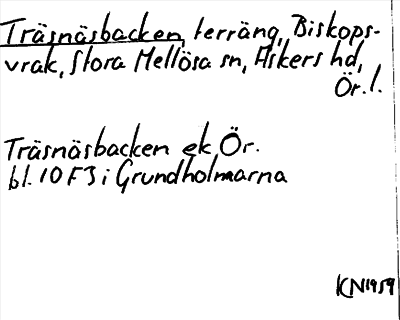 Träsnäsbacken, terräng, Biskops-
vrak, Stora Mellösa sn, Askers hd,
Ör. l.
Träsnäsbacken ek Ör.
bl. 10 F3 i Grundholmarna
KN 1959